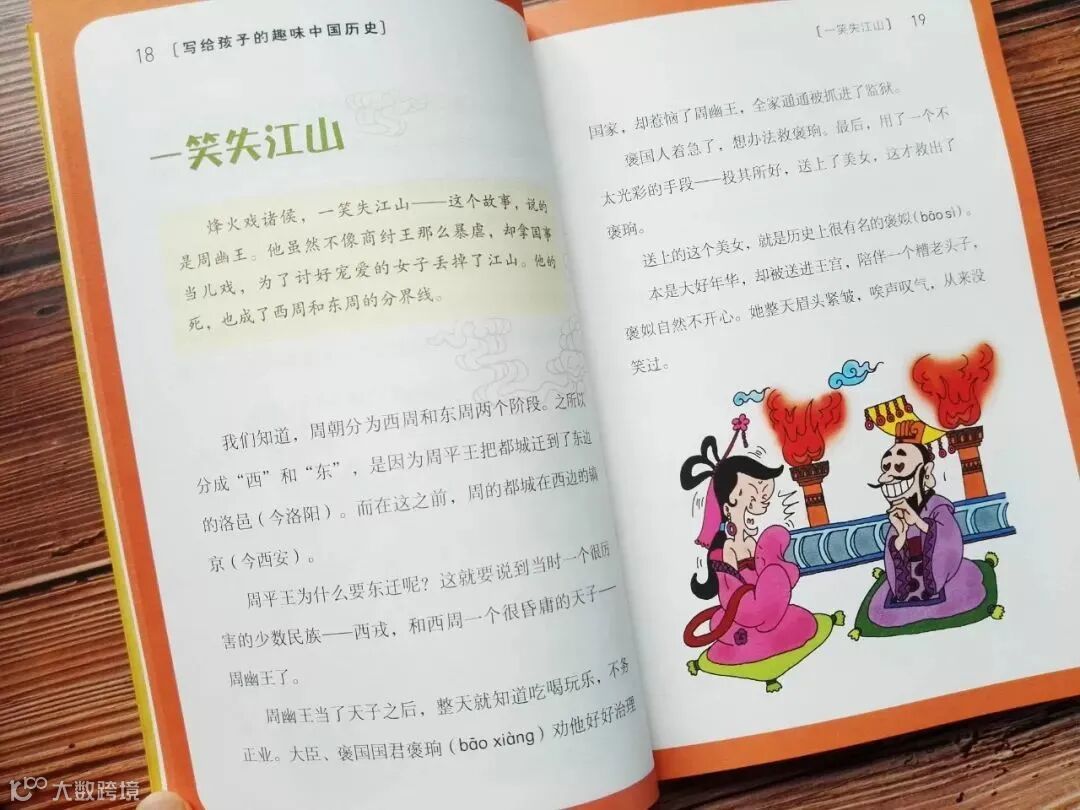 18 [写给孩子的趣味中国历史]
一笑失江山
烽火戏诸侯，一笑失江山——这个故事，说的
是周幽王。他虽然不像商纣王那么暴虐，却拿国事
当儿戏，为了讨好宠爱的女子丢掉了江山。他的
死，也成了西周和东周的分界线。
我们知道，周朝分为西周和东周两个阶段。之所以
分成“西”和“东”，是因为周平王把都城迁到了东边
的洛邑（今洛阳）。而在这之前，周的都城在西边的镐
京（今西安）。
周平王为什么要东迁呢？这就要说到当时一个很厉
害的少数民族——西戎，和西周一个很昏庸的天子——
周幽王了。
周幽王当了天子之后，整天就知道吃喝玩乐，不务
正业。大臣、褒国国君褒珦（bāo xiàng）劝他好好治理
[一笑失江山] 19
国家，却惹恼了周幽王，全家通通被抓进了监狱。
褒国人着急了，想办法救褒珦。最后，用了一个不
太光彩的手段——投其所好，送上了美女，这才救出了
褒珦。
送上的这个美女，就是历史上很有名的褒姒（bāo sì）。
本是大好年华，却被送进王宫，陪伴一个糟老头子，
褒姒自然不开心。她整天眉头紧皱，唉声叹气，从来没
笑过。
大数跨境